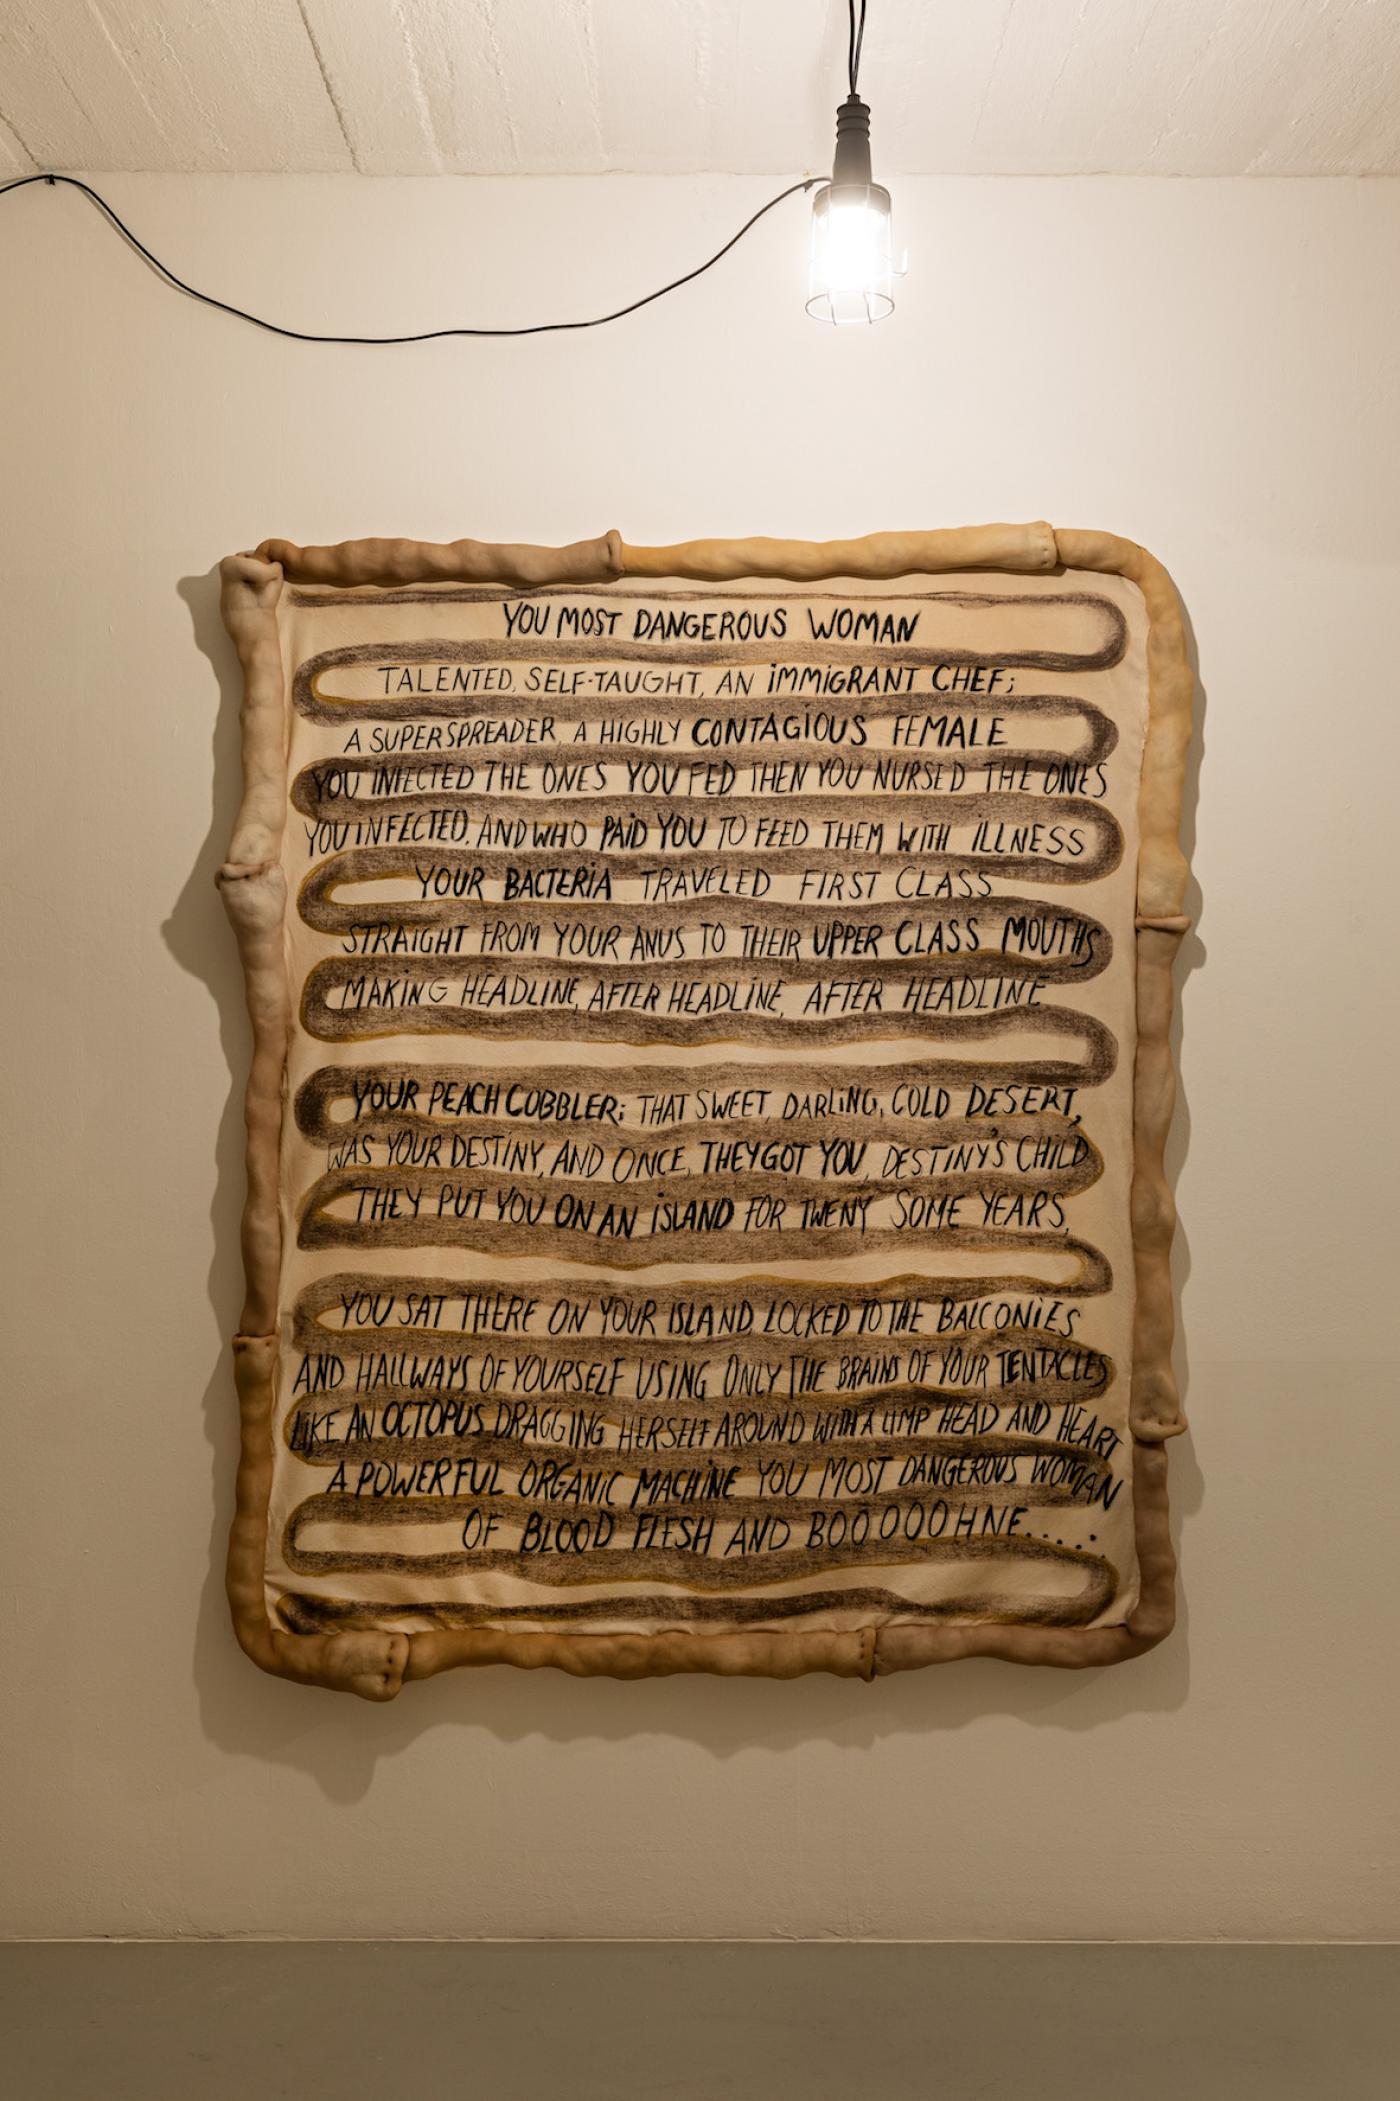 YOU MOST DANGEROUS WOMAN
TALENTED, SELF-TAUGHT, AN iMMiGRANT CHEF;
A SUPERSPREADER, A HIGHLY CONTAGiOUS FEMALE
YOU INFECTED THE ONES YOU FED THEN YOU NURSED THE ONES
YOU iNFECTED, AND WHO PAiD YOU TO FEED THEM WiTH iLLNESS
YOUR BACTERiA TRAVELED FIRST CLASS
STRAiGHT FROM YOUR ANUS TO THEIR UPPER CLASS MOUTHS
MAKiNG HEADLINE, AFTER HEADLiNE, AFTER HEADLINE
YOUR PEACH COBBLER; THAT SWEET, DARLiNG, COLD DESERT,
WAS YOUR DESTiNY, AND ONCE, THEY GOT YOU, DESTiNY'S CHILD
THEY PUT YOU ON AN iSLAND FOR TWENY SOME YEARS,
YOU SAT THERE ON YOUR ISLAND LOCKED TO THE BALCONiES
AND HALLWAYS OF YOURSELF USiNG ONLY THE BRAiNS OF YOUR TENTACLES
LIKE AN OCTOPUS DRAGGING HERSELF AROUND WiTH A LIMP HEAD AND HEART
A POWERFUL ORGANiC MACHiNE YOU MOST DANGEROUS WOMAN
OF BLOOD FLESH AND BOOOOOHNE.....